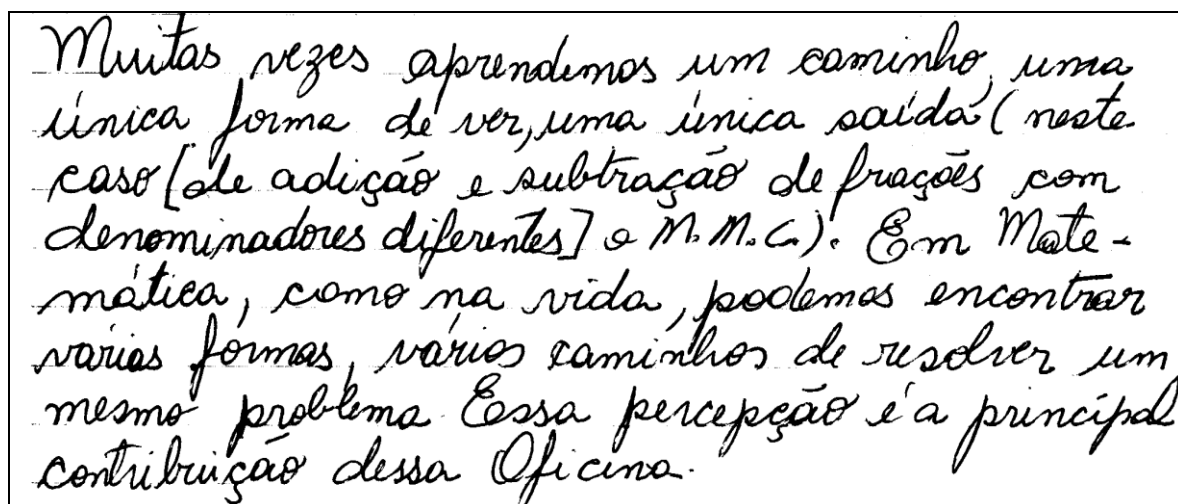 Muitas vezes aprendemos um caminho, uma
única forma de ver, uma única saída (neste
caso [de adição e subtração de frações com
denominadores diferentes] o M.M.C.). Em Mate-
mática, como na vida, podemos encontrar
várias formas, vários caminhos de resolver um
mesmo problema Essa percepção é a principal
contribuição dessa Oficina.